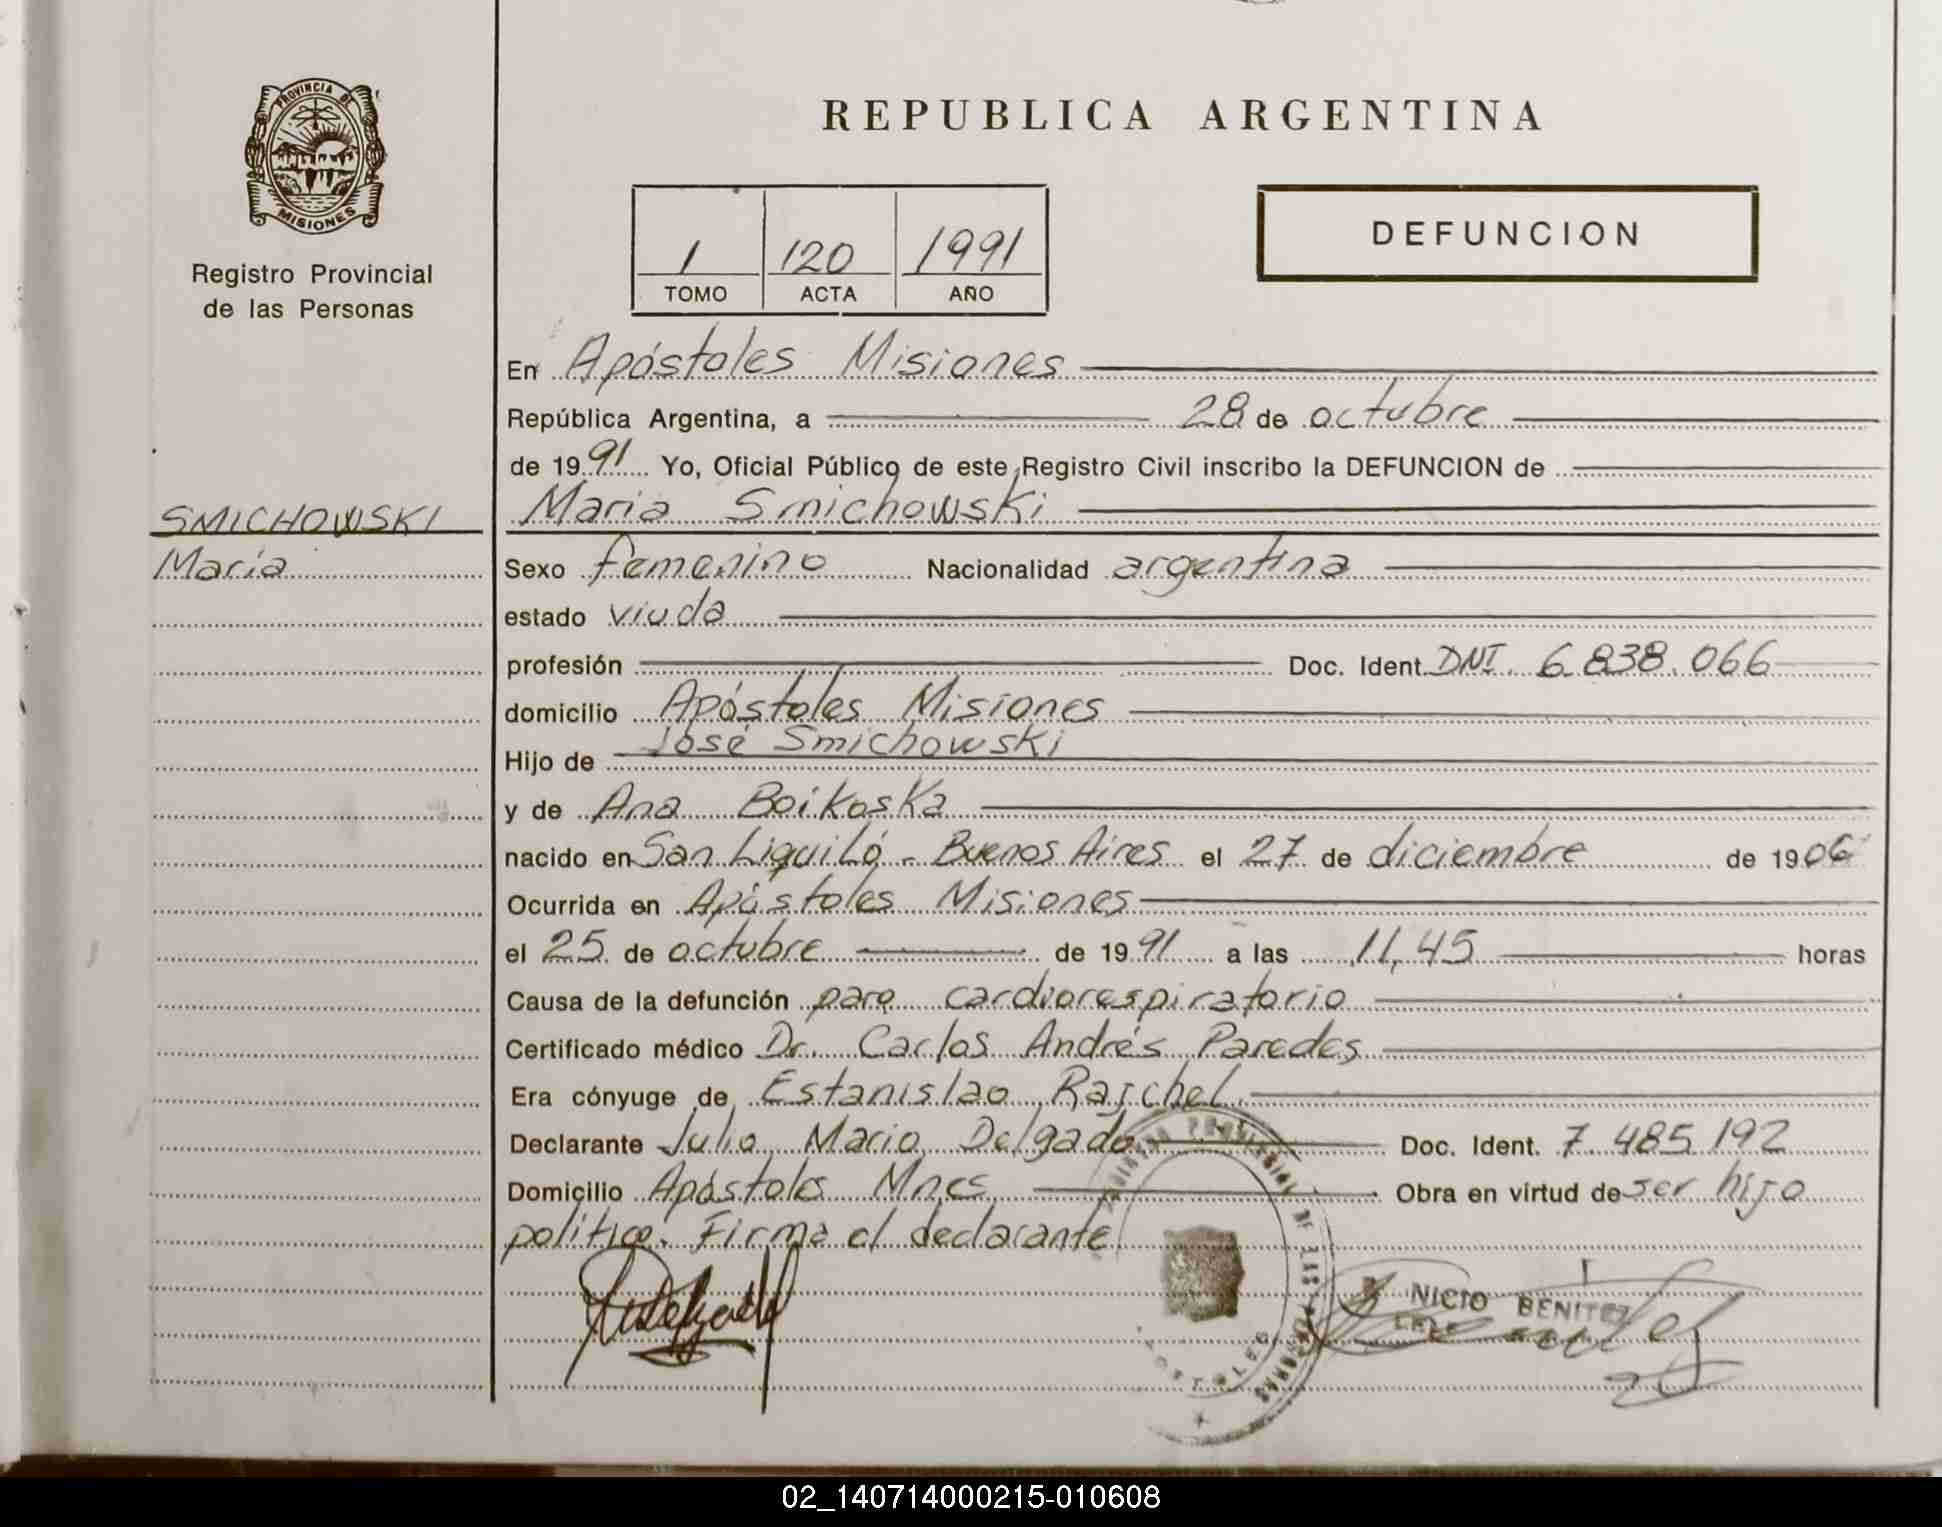 PROVINCIA DE
MISIONES
Registro Provincial
de las Personas
SMICHOWSKI
María
REPUBLICA ARGENTINA
1 120 1991
TOMO ACTA AÑO
DEFUNCION
En Apóstoles Misiones
República Argentina, a 28 de octubre
de 1991 Yo, Oficial Público de este Registro Civil inscribo la DEFUNCION de
Maria Smichowski
Sexo femenino Nacionalidad argentina
estado viuda
profesión Doc. Ident. DNI. 6.838.066
domicilio Apóstoles Misiones
Hijo de José Smichowski
y de Ana Boikoska
nacido en San Liquiló - Buenos Aires el 27 de diciembre de 1906
Ocurrida en Apóstoles Misiones
el 25 de octubre de 1991 a las 11,45 horas
Causa de la defunción paro cardiorespiratorio
Certificado médico Dr. Carlos Andrés Paredes
Era cónyuge de Estanislao Rajchel.
Declarante Julio Mario Delgado Doc. Ident. 7.485.192
Domicilio Apóstoles Mnes Obra en virtud de ser hijo
político. Firma el declarante
REGISTRO PROVINCIAL DE LAS PERSONAS
NICIO BENITEZ
02_140714000215-010608